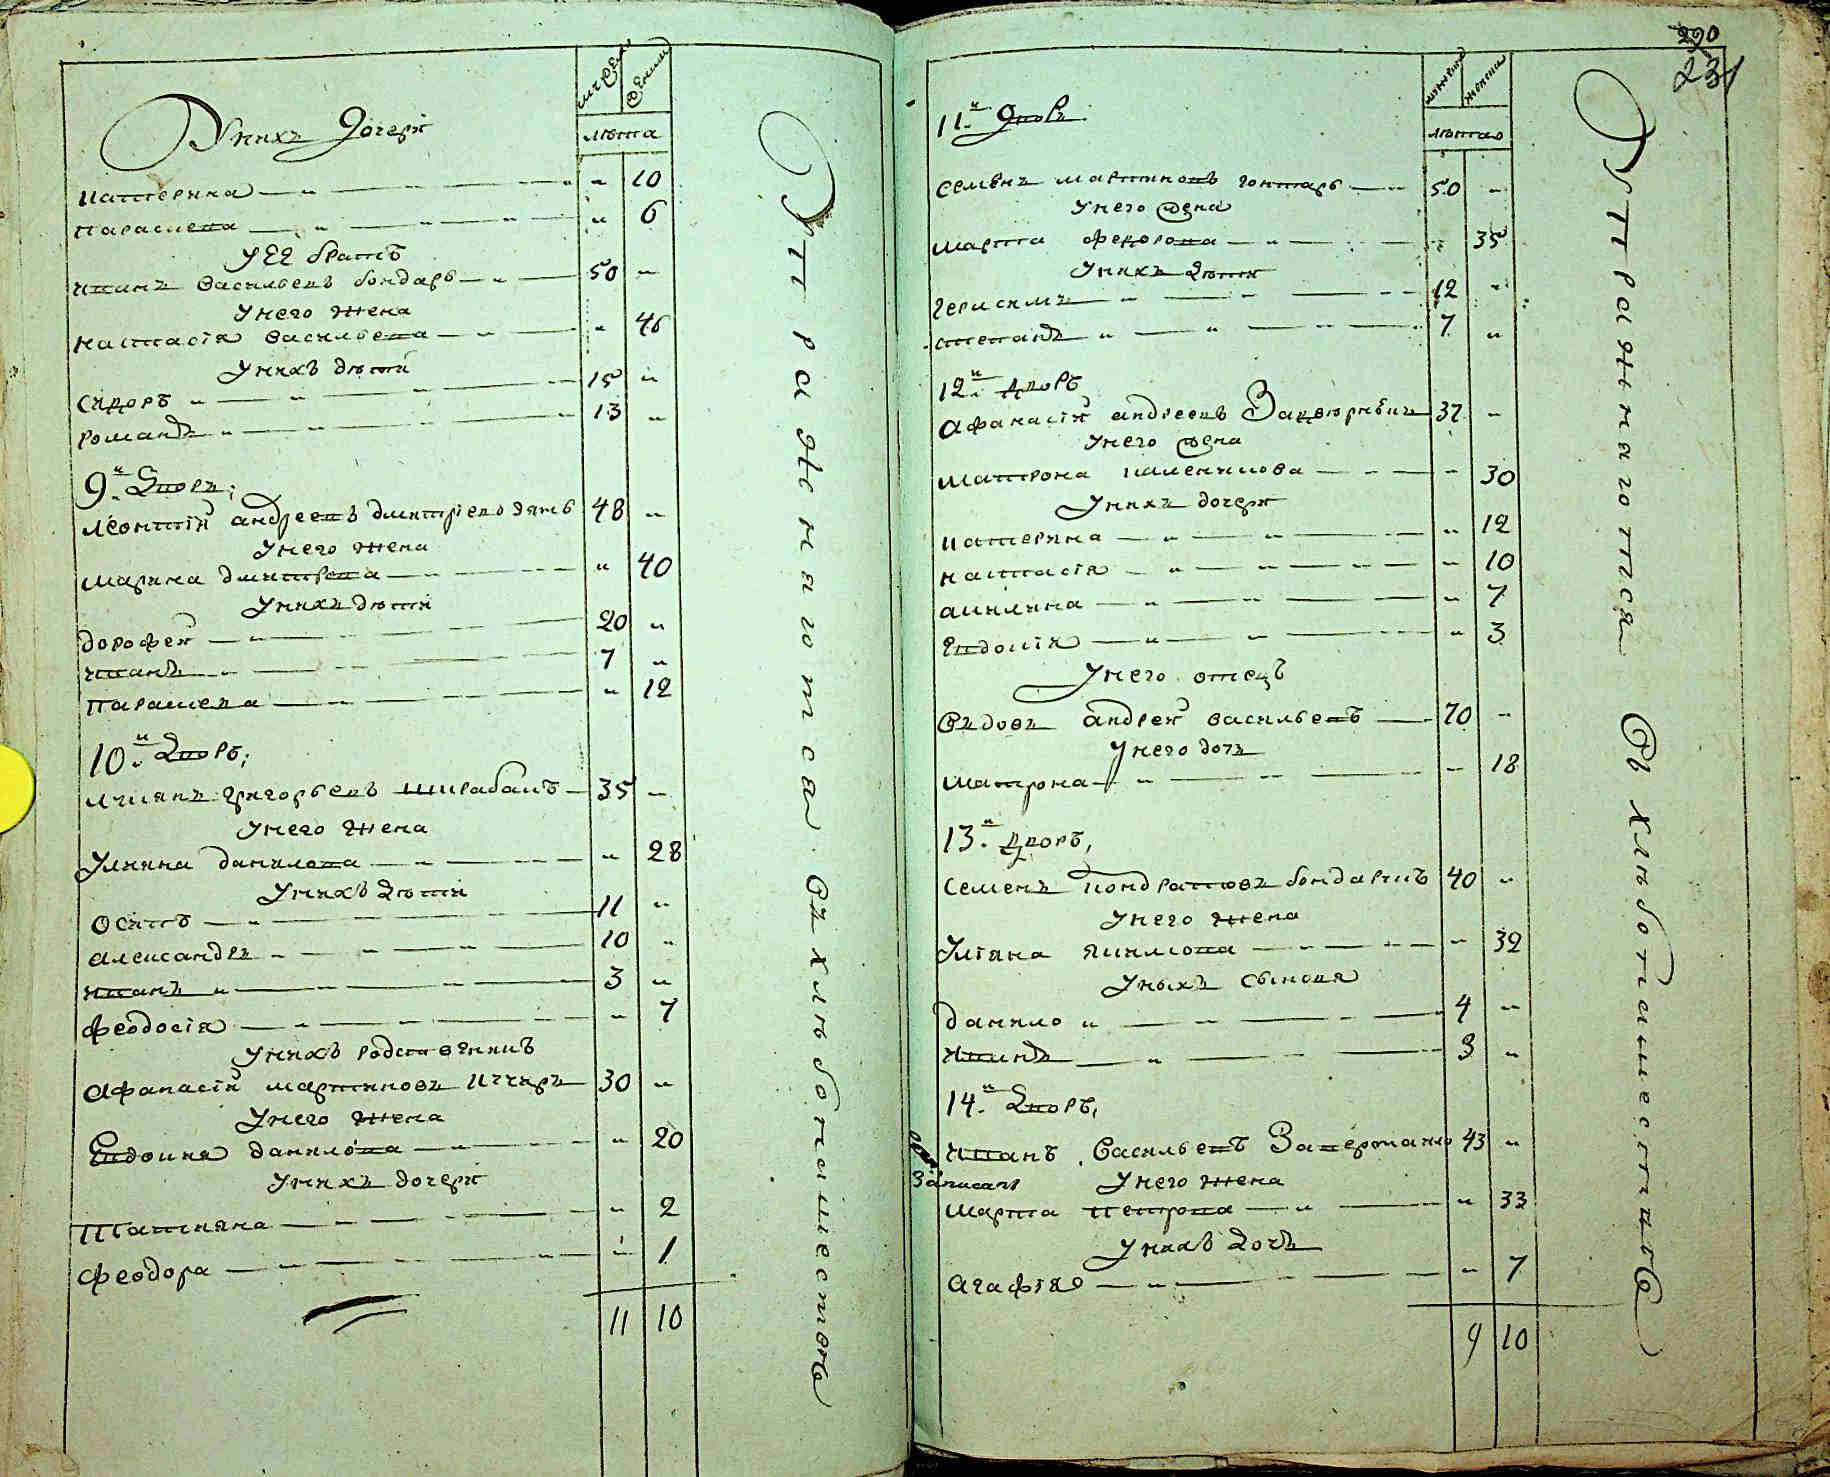 мужеск
женски
лѣта
У нихъ дочери
катерина " 10
параскева " 6
у ее братъ
иванъ васильевъ бондарь 50 "
у него жена
настасія васильева " 46
у нихъ дѣти
сидоръ 15 "
романъ 13 "
9.й дворъ;
леонтій андреевъ дмитріево зять 48 "
у него жена
марина дмитрева " 40
у нихъ дѣти
дорофей 20 "
иванъ 7 "
параскева " 12
10.й дворъ;
лукянъ григорьевъ шкрабакъ 35 "
у него жена
Улияна данилова " 28
у нихъ дѣти
осипъ 11 "
александръ 10 "
иванъ 3 "
феодосія " 7
у нихъ родственникъ
афанасій мартиновъ 30 "
у него жена
Евдокия данилова " 20
у нихъ дочери
татияна " 2
феодора " 1
11 10
Упражняются въ хлѣбопашествѣ
290
231
мужеска
женска
лѣта
11.й дворъ
семенъ мартиновъ гонтарь 50 "
у него жена
марта федорова " 35
у нихъ дѣти
герасимъ 12 "
степанъ 7 "
12.й дворъ
афанасій андреевъ 37 "
у него жена
матрона " 30
у нихъ дочери
катерина " 12
настасія " 10
акилина " 7
Евдокія " 3
у него отецъ
въдовъ андрей васильевъ 70 "
у него дочь
матрона " 18
13.й дворъ,
семенъ кондратовъ бондарикъ 40 "
у него жена
Уліяна якимова " 32
у ныхъ сыновя
данило 4 "
иванъ 3 "
14.й дворъ,
иванъ васильевъ 43 "
записанъ
у него жена
марта петрова " 33
у нихъ дочь
агафія " 7
9 10
Упражняются въ хлѣбопашествѣ